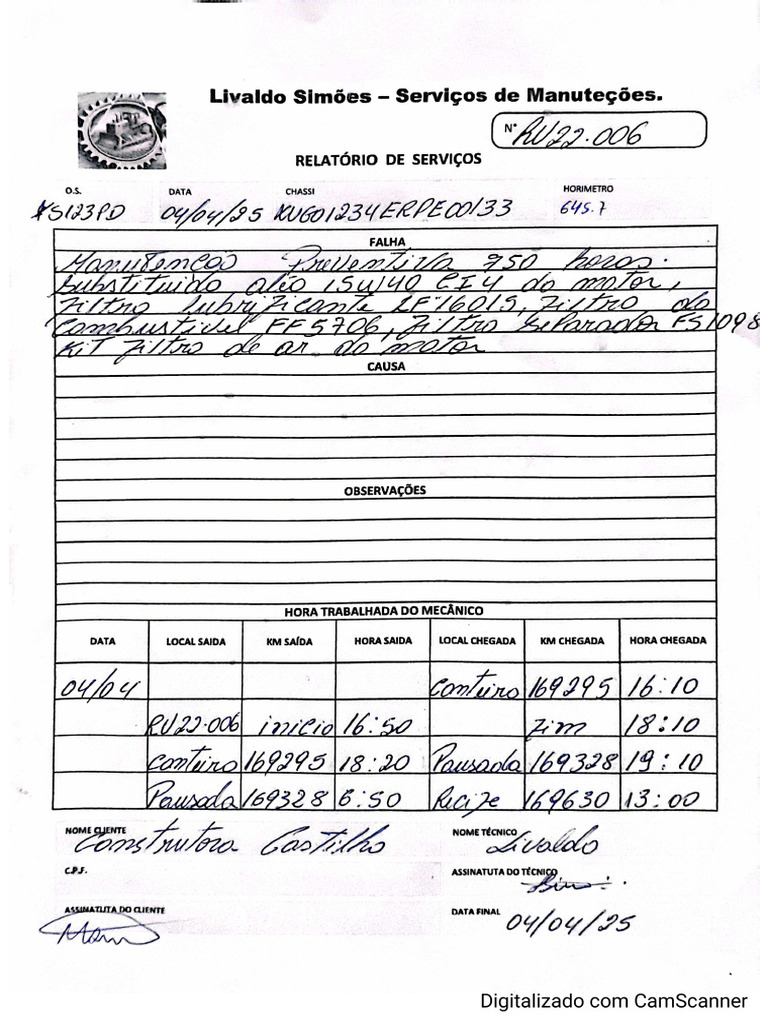 Livaldo Simões – Serviços de Manuteções.
N° RU22.006
RELATÓRIO DE SERVIÇOS
O.S. DATA CHASSI HORIMETRO
XS123PD 04/04/25 XUG01234ERPE00133 645.7
FALHA
Manutenção Preventiva 750 horas.
Substituido oléo 15W40 CI4 do motor,
Filtro lubrificante LF16015, Filtro do
Combustidel FF5706, Filtro Separador FS1098
Kit Filtro de ar do motor
CAUSA
OBSERVAÇÕES
HORA TRABALHADA DO MECÂNICO
DATA LOCAL SAIDA KM SAÍDA HORA SAIDA LOCAL CHEGADA KM CHEGADA HORA CHEGADA
04/04 Canteiro 169295 16:10
RU22.006 inicio 16:50 Fim 18:10
Canteiro 169295 18:20 Pousada 169328 19:10
Pousada 169328 6:50 Recife 169630 13:00
NOME CLIENTE Construtora Castilho
NOME TÉCNICO Livaldo
C.P.F.
ASSINATUTA DO TÉCNICO
ASSINATUTA DO CLIENTE
DATA FINAL 04/04/25
Digitalizado com CamScanner